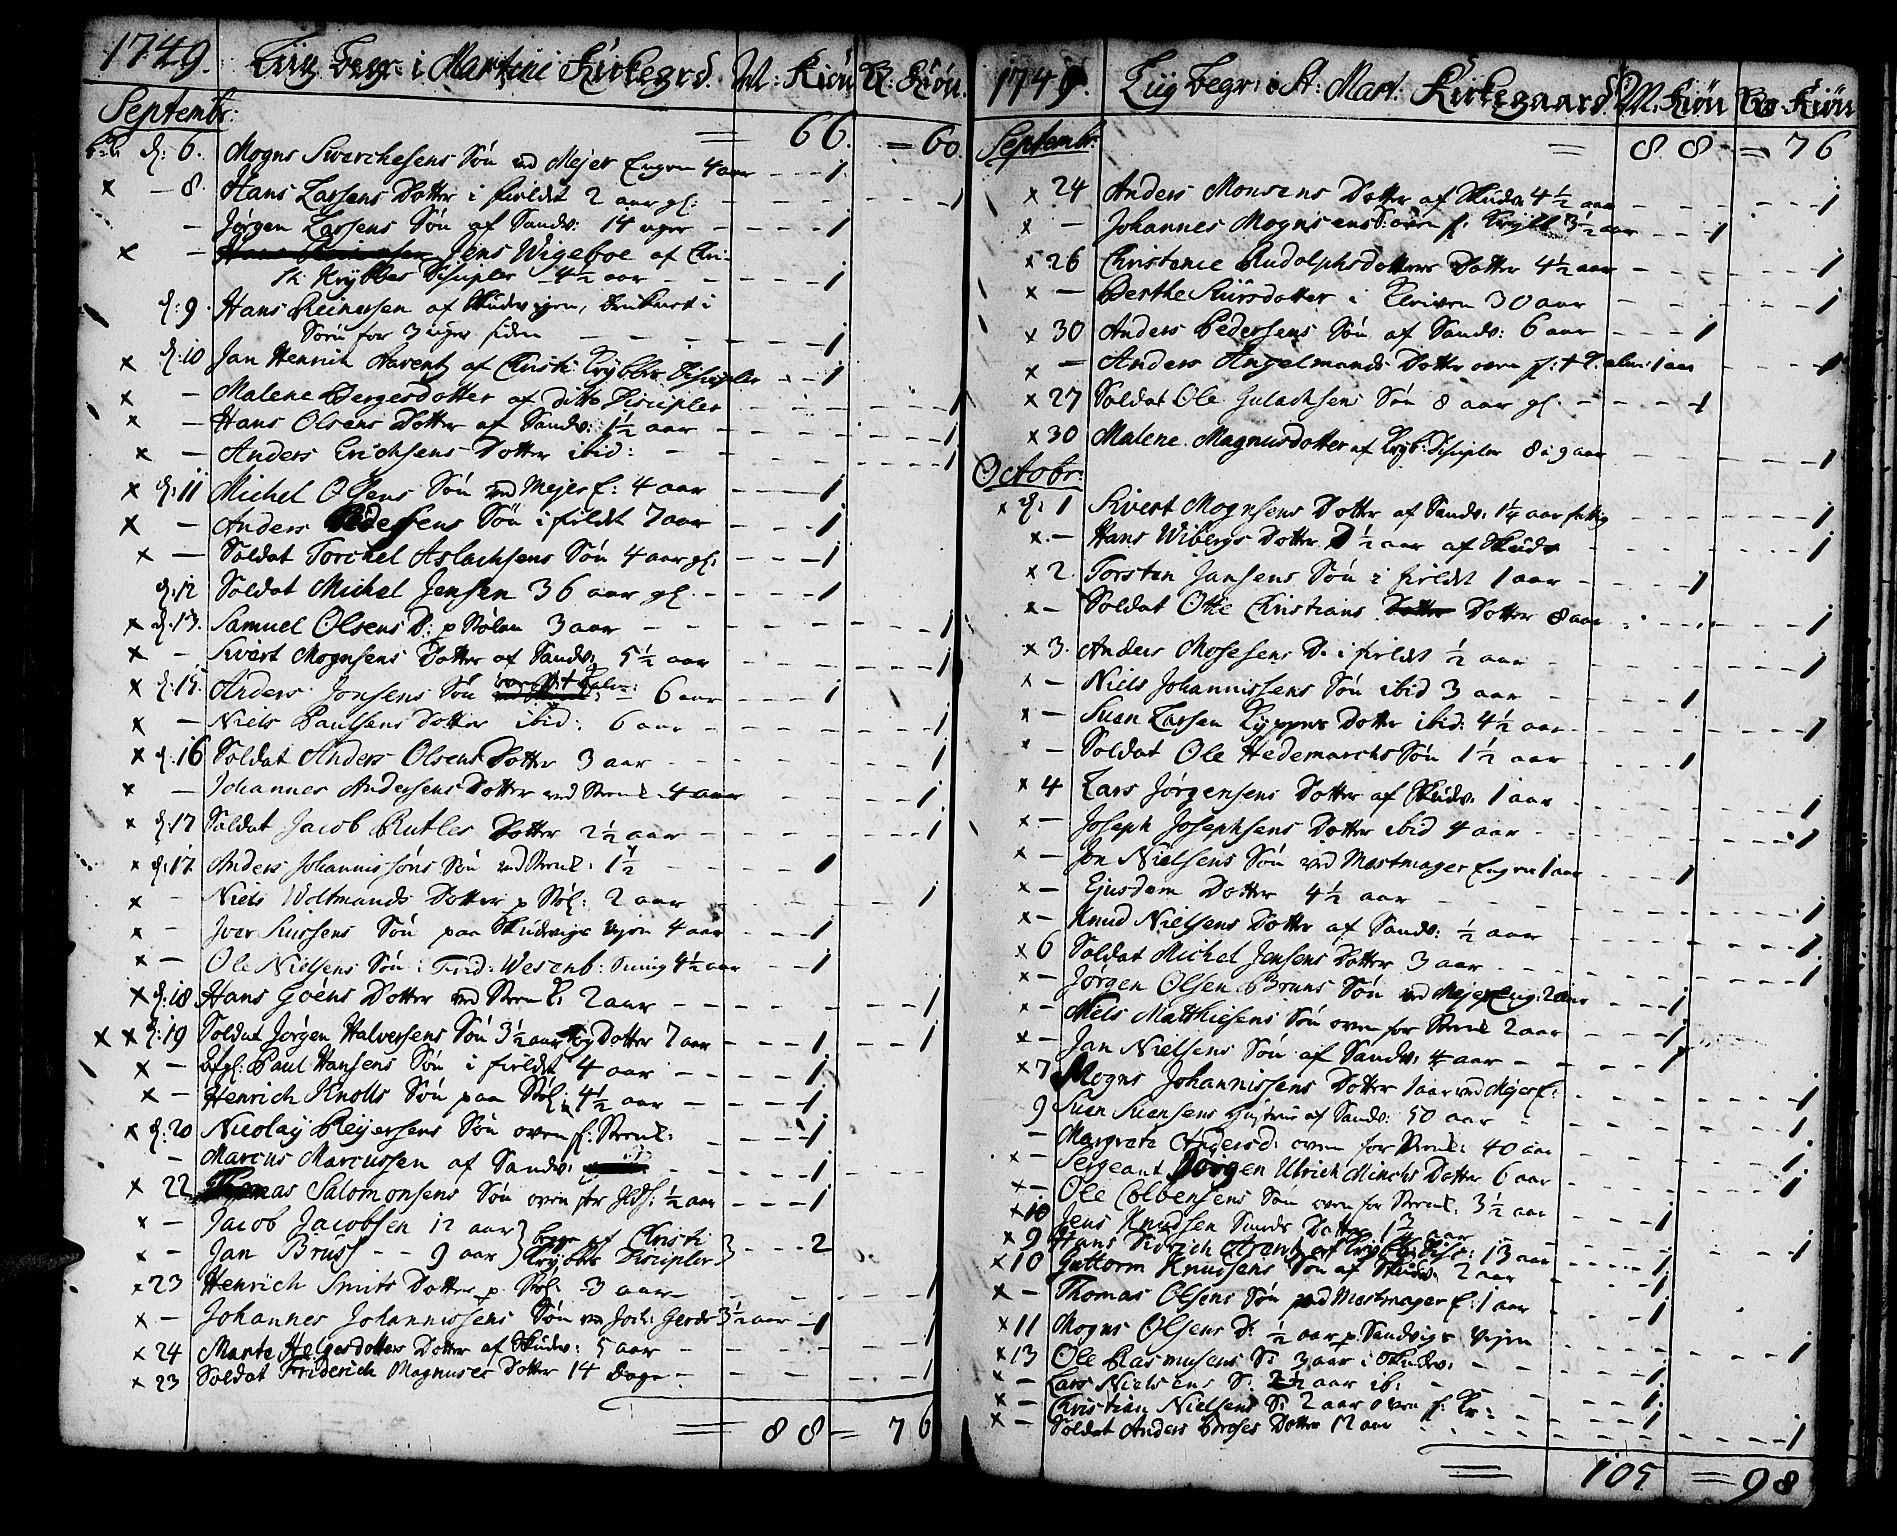 1749. Liig begr: i Martini Kirkegrd. M: Kiön Q: Kiön.
Septembr: = 66. = 60.
d: 6. Mogns Swerchesens Sön ved Mejer Engen 4 aar - - - 1
x - 8. Hans Larsens Dotter i fieldet 2 aar gl: - - - 1
- Jörgen Larsens Sön af Sandv: 14 uger - - - 1
x - Jens Wigeboe af Chri-
sti Krybbes Disipler 4½ aar - - - 1
d: 9 Hans Reinersen af Skudevigen, druknet i
Söen for 3 uger siden - - - 1
x d: 10 Jan Henrich Harentz af Christi Krybbes Disipler - - 1
x - Malene Bergesdotter af ditto Disipler - - - 1
x - Hans Olsens Dotter af Sandv: 1½ aar - - - 1
x - Anders Erichsens Dotter ibid: - - - 1
x d: 11 Michel Olsens Sön ved Mejer E: 4 aar - - - 1
x - Anders Pedersens Sön i fieldet 7 aar - - - 1
x - Soldat Torchel Aslachsens Sön 4 aar gl: - - - 1
d: 12 Soldat Michel Jensen 36 aar gl. - - - 1
x d: 13. Samuel Olsens D: p Stölen 3 aar - - - 1
x - Sivert Mognsens Dotter af Sandv: 5½ aar - - - 1
x d: 15. Anders Jonsens Sön 6 aar - - - 1
x - Niels Paulsens Dotter ibid: 6 aar - - - 1
x d: 16 Soldat Anders Olsens Dotter 3 aar - - - 1
x - Johannes Andersens Dotter ved Strml. 4 aar - - - 1
x d: 17 Soldat Jacob Rutles Dotter 2½ aar - - - 1
x d: 17. Anders Johannissöns Sön ved Strml: 1½ - - - 1
x - Niels Woltmands Dotter p Stöl: 2 aar - - - 1
x - Iver Siursens Sön paa Skudevigs Vejen 4 aar - - - 1
x - Ole Nielsens Sön i Frid: Wesenb: Smug 4½ aar - - - 1
x d: 18 Hans Goéns Dotter ved Strml: 2 aar - - - 1
x x d: 19 Soldat Jörgen Halversens Sön 3½ aar og Dotter 7 aar - - 1 - - 1
x - Afgl: Paul Hansens Sön i fieldet 4 aar - - - 1
x - Henrich Knolls Sön paa Stöl: 4½ aar - - - 1
x d: 20 Nicolay Reijersens Sön oven f: Strml: - - - 1
- Marcus Marcussen af Sandv: - - - 1
x 22 Thomas Salomonsens Sön oven for ½ aar - - - 1
x - Jacob Jacobsen 12 aar } begge af Christi
x - Jan Brüss - - 9 aar } Krybbes Disipler } - - - 2
x 23 Henrich Smits Dotter p. Stöl: 3 aar - - - 1
x - Johannes Johannissens Sön ved Joch: Gerdr 3½ aar - 1
x 24 Marte Helgesdotters Dotter af Skudv: 5 aar - - - 1
x 23 Soldat Friderich Magnuses Dotter 14 Dage - - - 1
= 88 = 76
1749. Liig begr: i St: Mart: Kirkegaard. M. Kiön Qv. Kiön
Septembr: = 88 = 76
x 24 Anders Monsens Dotter af Skudv: 4½ aar - - - 1
x - Johannes Mognsens Sön oven f: Krybb 3½ aar - - - 1
x 26 Christence Rudolphsdotters Dotter 4½ aar - - - 1
x - Berthe Siursdotter i Kleiven 30 aar - - - 1
x 30 Anders Pedersens Sön af Sandv: 6 aar - - - 1
x - Anders Angelmands Dotter oven f: + K. alm: 1 aar - - - 1
x 27 Soldat Ole Gulachsens Sön 8 aar gl. - - - 1
x 30 Malene Magnusdotter af Kryb: Disipler 8 à 9 aar - - - 1
Octobr:
x d: 1 Sivert Mognsens Dotter af Sandv: 1¼ aar fattig - - - 1
x - Hans Wibergs Dotter ½ aar af Skudv - - - 1
x 2. Torsten Jansens Sön i fieldet 1 aar - - - 1
x - Soldat Otte Christians Dotter 8 aar - - - 1
x 3. Anders Mosesens D. i fieldet ½ aar - - - 1
x - Niels Johannissens Sön ibid 3 aar - - - 1
x - Suen Larsen Kyppers Dotter ibid: 4½ aar - - - 1
x - Soldat Ole Hedemarchs Sön 1½ aar - - - 1
x 4 Lars Jörgensens Dotter af Skudv: 1 aar - - - 1
x - Joseph Josephsens Dotter ibid 4 aar - - - 1
x - Jon Nielsens Sön ved Mestmager Engen 1 aar - - - 1
x - Ejusdem Dotter 4½ aar - - - 1
x - Knud Nielsens Dotter af Sandv: ½ aar - - - 1
x 6 Soldat Michel Jensens Dotter 3 aar - - - 1
x - Jörgen Olsen Bruns Sön ved Mejer Eng: 2 aar - - - 1
x - Niels Matthiesens Sön oven for Strml 2 aar - - - 1
x - Jan Nielsens Sön af Sandv: 4 aar - - - 1
x 7 Mogns Johannissens Dotter 1 aar ved Mejer E: - - - 1
9 Suen Suensens Hustrue af Sandv: 50 aar - - - 1
- Margrete Andersd: oven for Strml: 40 aar - - - 1
x - Sergeant Jörgen Ulrich Minchs Dotter 6 aar - - - 1
x - Ole Colbensens Sön oven for Strml: 3½ aar - - - 1
x 10 Jens Knudsen Sunds Dotter 1¾ aar - - - 1
x 9 Hans Didrich Arentz af Krybb: Disi: 13 aar - - - 1
x 10 Guttorm Knudsens Sön af Skudv: 2 aar - - - 1
x - Thomas Olsens Sön ved Mestmager E: 1 aar - - - 1
x 11 Mogns Olsens D: ½ aar p Sandvigs Vejen - - - 1
x 13 Ole Rasmusens S: 3 aar i Skudv: - - - 1
x - Lars Nielsens S: 2½ aar ib: - - - 1
x - Christian Nielsens S: 2 aar oven f: Kr: - - - 1
x - Soldat Anders Borges Dotter 12 aar - - - 1
= 105 = 98